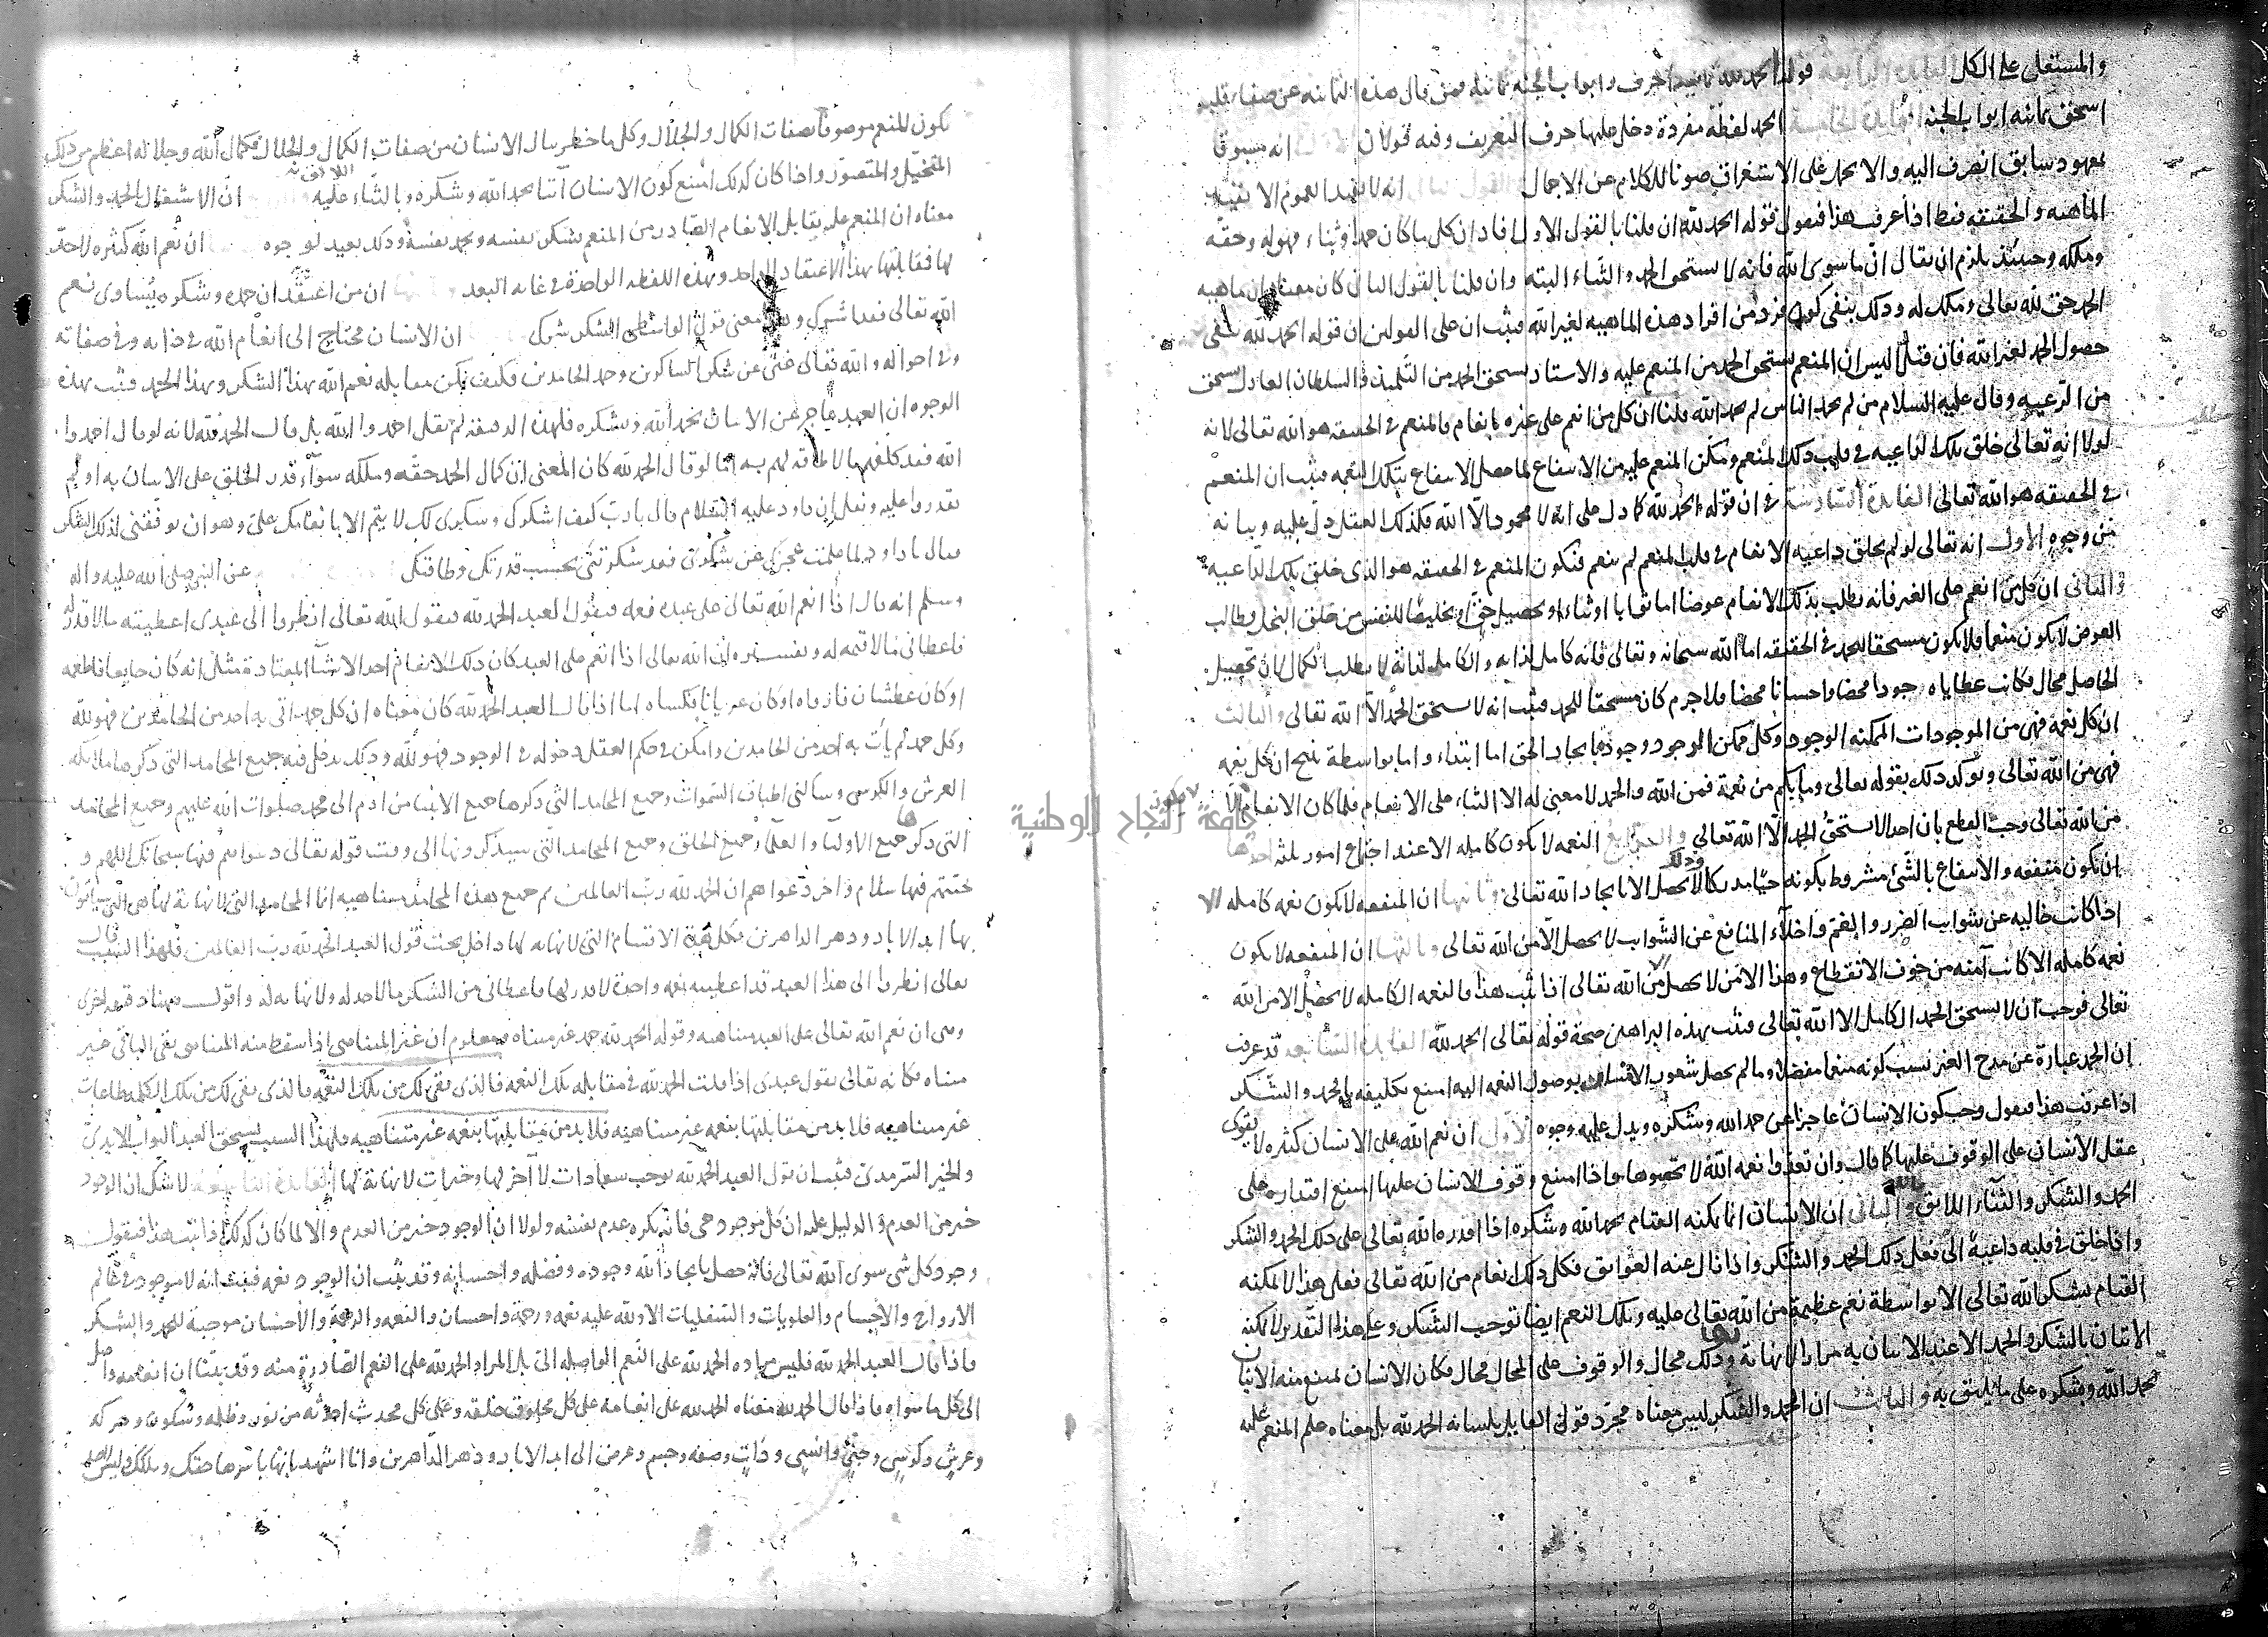 والمستعلى على الكل الفائدة الرابعة قوله الحمد لله ثمانية احرف وابواب الجنة ثمانية فمن قال هذه الثمانية عن صفاء قلبه
استحق ثمانية ابواب الجنة الفائدة الخامسة الحمد لفظة مفردة دخل عليها حرف التعريف وفيه قولان انه مسبوقا
بمعهود سابق انصرف اليه والا يحمل على الاستغراق صونا للكلام عن الاجمال القول الثاني انه لا يفيد العموم الا انه يفيد
الماهية والحقيقة فقط اذا عرفت هذا فنقول قوله الحمد لله ان قلنا بالقول الاول افاد ان كل ما كان حمدا وثناء فهو له وحقه
وملكه وحينئذ يلزم ان يقال ان ما سوى الله فانه لا يستحق الحمد والثناء البتة وان قلنا بالقول الثاني كان معناه ان ماهية
الحمد حق لله تعالى وملك له وذلك ينفى كون فرد من افراد هذه الماهية لغير الله فثبت ان على القولين ان قوله الحمد لله ينفى
حصول الحمد لغير الله فان قيل اليس ان المنعم يستحق الحمد من المنعم عليه والاستاد يستحق الحمد من التلميذ والسلطان العادل يستحق
من الرعيه وقال عليه السلام من لم يحمد الناس لم يحمد الله قلنا ان كل من انعم على غيره بانعام فالمنعم في الحقيقه هو الله تعالى لانه
لولا انه تعالى خلق تلك الداعيه في قلب ذلك المنعم ومكن المنعم عليه من الانتفاع لما حصل الانتفاع بتلك النعمه فثبت ان المنعم
في الحقيقه هو الله تعالى الفائدة السادسة في ان قوله الحمد لله كما دل على انه لا محمود الا الله فكذلك العقل دل عليه وبيانه
من وجوه الاول انه تعالى لو لم يخلق داعية الانعام في قلب المنعم لم ينعم فيكون المنعم في الحقيقه هو الذى خلق تلك الداعيه
والثانى ان كل من انعم على الغير فانه يطلب بذلك الانعام عوضا اما ثوابا او ثناء او تحصيل حق او تخليصا للنفس من خلق البخل وطالب
العوض لا يكون منعما فلا يكون مستحقا للحمد في الحقيقه اما الله سبحانه وتعالى فانه كامل لذاته والكامل لذاته لا يطلب الكمال لان تحصيل
الحاصل محال فكانت عطاياه جودا محضا واحسانا محضا فلا جرم كان مستحقا للحمد فثبت انه لا يستحق الحمد الا الله تعالى والثالث
ان كل نعمه فهى من الموجودات الممكنه الوجود وكل ممكن الوجود وجودها بايجاد الحق اما ابتداء واما بواسطة ينتج ان كل نعمه
فهى من الله تعالى ويؤكد ذلك بقوله تعالى وما بكم من نعمة فمن الله والحمد لا معنى له الا الثناء على الانعام فلما كان الانعام لا يكون الا
من الله تعالى وجب القطع بان احدا لا يستحق الحمد الا الله تعالى والرابع النعمه لا يكون كامله الا عند اجتماع امور ثلثه احدها
ان يكون منفعه والانتفاع بالشئ مشروط بكونه حيا مدركا وذلك لا يحصل الا بايجاد الله تعالى وثانيها ان المنفعه لا يكون نعمه كامله الا
اذا كانت خاليه عن شوايب الضرر والغم واخلاء المنافع عن الشوايب لا يحصل الا من الله تعالى وثالثها ان المنفعه لا يكون
نعمه كامله الا كانت آمنه من خوف الانقطاع وهذا الامن لا يحصل الا من الله تعالى اذا ثبت هذا فالنعمه الكامله لا يحصل الا من الله
تعالى فوجب ان لا يستحق الحمد الكامل الا الله تعالى فثبت بهذه البراهين صحة قوله تعالى الحمد لله الفايدة السابعه قد عرفت
ان الحمد عبارة عن مدح الغير بسبب كونه منعما مفضلا وما لم يحصل شعور الانسان بوصول النعمه اليه امتنع تكليفه بالحمد والشكر
اذا عرفت هذا فنقول وجب كون الانسان عاجزا عن حمد الله وشكره ويدل عليه وجوه الاول ان نعم الله على الانسان كثيره لا يقوى
عقل الانسان على الوقوف عليها كما قال وان تعدوا نعمه الله لا تحصوها واذا امتنع وقوف الانسان عليها امتنع اقتداره على
الحمد والشكر والثناء اللايق والثانى ان الانسان انما يمكنه القيام بحمد الله وشكره اذا اقدره الله تعالى على ذلك الحمد والشكر
واذا خلق في قلبه داعية الى فعل ذلك الحمد والشكر واذا زال عنه العوايق فكل ذلك انعام من الله تعالى فعلى هذا لا يمكنه
القيام بشكر الله تعالى الا بواسطة نعم عظيمة من الله تعالى عليه وتلك النعم ايضا توجب الشكر وعلى هذا التقدير لا يمكنه
الاتيان بالشكر والحمد الا عند الاتيان به مرارا لا نهاية لها وذلك محال والوقوف على المحال محال فكان الانسان يمتنع منه الاتيان
بحمد الله وبشكره على ما يليق به والثالث ان الحمد والشكر ليس معناه مجرد قول القايل بلسانه الحمد لله بل معناه علم المنعم عليه
بكون المنعم موصوفا بصفات الكمال والجلال وكل ما خطر ببال الانسان من صفات الكمال والجلال فكمال الله وجلاله اعظم من ذلك
المتخيل والمتصور واذا كان كذلك امتنع كون الانسان آتيا بحمد الله وشكره وبالثناء عليه اللايق به ان الاشتغال بالحمد والشكر
معناه ان المنعم عليه يقابل الانعام الصادر من المنعم بشكر نفسه وبحمد نفسه وذلك بعيد لوجوه ان نعم الله كثيره لا حد
لها فمقابلتها بهذا الاعتقاد الواحد وبهذه اللفظه الواحدة في غايه البعد ان من اعتقد ان حمده وشكره يساوى نعم
الله تعالى فقد اشرك وهذا معنى قول الواسطى الشكر شرك ان الانسان محتاج الى انعام الله في ذاته وفي صفاته
وفي احواله والله تعالى غنى عن شكر الشاكرين وحمد الحامدين فكيف يمكن مقابله نعم الله بهذا الشكر وبهذا الحمد فثبت بهذه
الوجوه ان العبد عاجز عن الاتيان بحمد الله وبشكره فلهذه الدقيقه لم يقل احمدوا الله بل قال الحمد لله لانه لو قال احمدوا
الله فقد كلفهم ما لا طاقه لهم به اما لو قال الحمد لله كان المعنى ان كمال الحمد حقه وملكه سواء قدر الخلق على الاتيان به او لم
يقدروا عليه ونقل ان داود عليه السلام قال يارب كيف اشكرك وشكرى لك لا يتم الا بانعامك على وهو ان توفقنى لذلك الشكر
فقال يا داود لما علمت عجزك عن شكرى فقد شكرتنى بحسب قدرتك وطاقتك عن النبى صلى الله عليه واله
وسلم انه قال اذا انعم الله تعالى على عبده نعمه فيقول العبد الحمد لله فيقول الله تعالى انظروا الى عبدى اعطيته ما لا قدر له
فاعطانى ما لا قيمه له وتفسيره ان الله تعالى اذا انعم على العبد كان ذلك الانعام احد الاشياء المعتادة مثل انه كان جايعا فاطعمه
او كان عطشان فارواه او كان عريانا فكساه اما اذا قال العبد الحمد لله كان معناه ان كل حمد اتى به احد من الحامدين فهو لله
وكل حمد لم يأت به احد من الحامدين وامكن في حكم العقل دخوله في الوجود فهو لله وذلك يدخل فيه جميع المحامد التى ذكرها ملائكه
العرش والكرسى وساكنى اطباق السموات وجميع المحامد التى ذكرها جميع الانبيا من ادم الى محمد صلوات الله عليهم وجميع المحامد
التى ذكرها جميع الاولياء والعلماء وجميع الخلق وجميع المحامد التى سيذكرونها الى وقت قوله تعالى دعواهم فيها سبحانك اللهم و
تحيتهم فيها سلام واخر دعواهم ان الحمد لله رب العالمين ثم جميع هذه المحامد متناهيه اما المحامد التى لا نهاية لها هى التى سيأتون
بها ابد الاباد ودهر الداهرين فكل هذه الاقسام التى لا نهايه لها داخل تحت قول العبد الحمد لله رب العالمين فلهذا السبب قال
تعالى انظروا الى هذا العبد قد اعطيته نعمه واحدة لا قدر لها فاعطانى من الشكر ما لا حد له ولا نهايه له واقول وههنا دقيقه اخرى
وهى ان نعم الله تعالى على العبد متناهيه وقوله الحمد لله حمد غير متناه ومعلوم ان غير المتناهى اذا سقط منه المتناهى بقى الباقى غير
متناه فكانه تعالى يقول عبدى اذا قلت الحمد لله في مقابله تلك النعمه فالذى بقى لك من تلك النعمه فالذى بقى لك من تلك الكلمه طاعات
غير متناهيه فلا بد من مقابلتها بنعمه غير متناهيه فلا بد من مقابلتها بنعمه غير متناهيه فلهذا السبب يستحق العبد الثواب الابدى
والخير السرمدى فثبت ان قول العبد الحمد لله يوجب سعادات لا آخر لها وخيرات لا نهاية لها الفايدة لا شك ان الوجود
خير من العدم والدليل عليه ان كل موجود حى فانه يكره عدم نفسه ولولا ان الوجود خير من العدم والا لما كان كذلك اذا ثبت هذا فنقول
وجود كل شى سوى الله تعالى فانه حصل بايجاد الله وجوده وفضله واحسانه وقد ثبت ان الوجود نعمه فثبت انه لا موجود في عالم
الارواح والاجسام والعلويات والسفليات الا ولله عليه نعمه ورحمة واحسان والنعمه والرحمة والاحسان موجبة للحمد والشكر
فاذا قال العبد الحمد لله فليس مراده الحمد لله على النعم الواصله الى بل المراد الحمد لله على النعم الصادرة منه وقد بينا ان انعامه واصل
الى كل ما سواه فاذا قال الحمد لله معناه الحمد لله على انعامه على كل مخلوق خلقه وعلى كل محدث احدثه من نور وظله وسكون وحركه
وعرش وكرسى وجنى وانسى وذات وصفه وجسم وعرض الى ابد الاباد ودهر الداهرين وانا اشهد بانها باسرها حقك وملكك وليس
جامعة النجاح الوطنية